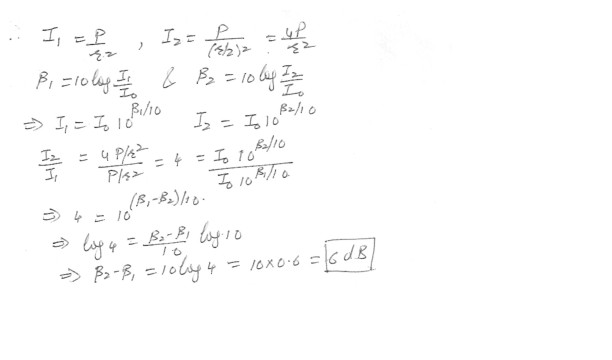 ∴ I₁ = P/r² , I₂ = P/(r/2)² = 4P/r²
β₁ = 10 log I₁/I₀ & β₂ = 10 log I₂/I₀
⇒ I₁ = I₀ 10^(β₁/10) I₂ = I₀ 10^(β₂/10)
I₂/I₁ = (4P/r²)/(P/r²) = 4 = (I₀ 10^(β₂/10))/(I₀ 10^(β₁/10))
⇒ 4 = 10^((β₁-β₂)/10).
⇒ log 4 = (β₂-β₁)/10 log 10
⇒ β₂-β₁ = 10 log 4 = 10×0.6 = 6 dB